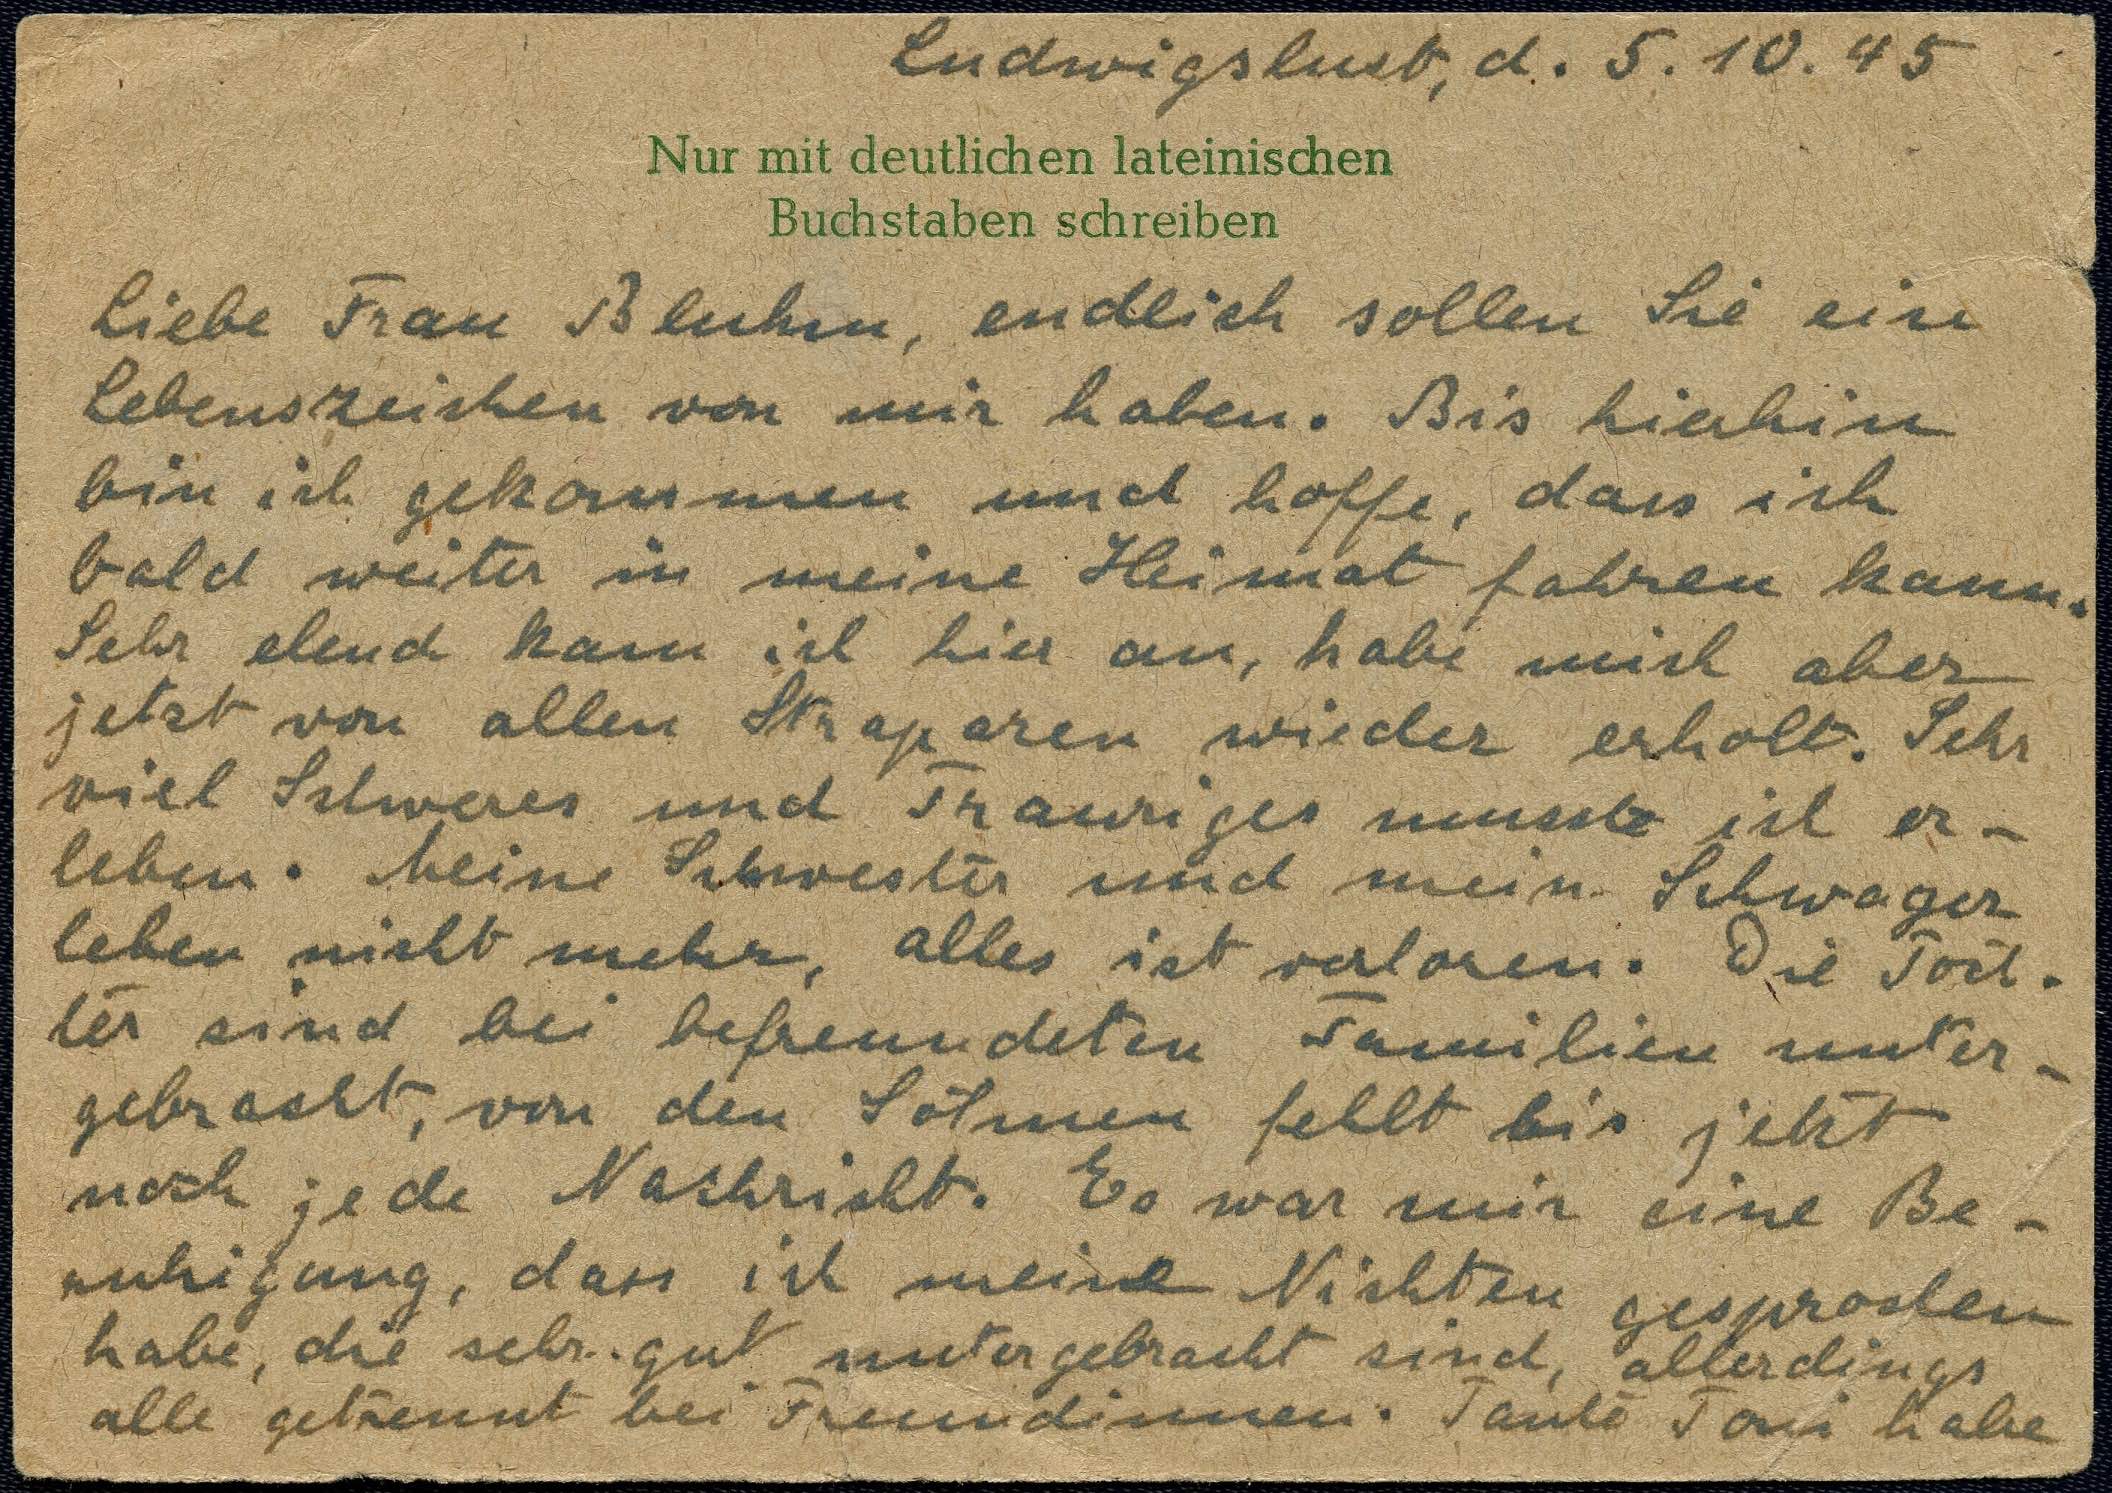 Ludwigslust, d. 5. 10. 45
Nur mit deutlichen lateinischen
Buchstaben schreiben
Liebe Frau Bluhm, endlich sollen Sie ein
Lebenszeichen von mir haben. Bis hierhin
bin ich gekommen und hoffe, dass ich
bald weiter in meine Heimat fahren kann.
Sehr elend kam ich hier an, habe mich aber
jetzt von allen Strapazen wieder erholt. Sehr
viel Schweres und Trauriges musste ich er-
leben. Meine Schwester und mein Schwager
leben nicht mehr, alles ist verloren. Die Töch-
ter sind bei befreundeten Familien unter-
gebracht, von den Söhnen fehlt bis jetzt
noch jede Nachricht. Es war mir eine Be-
ruhigung, dass ich meine Nichten gesprochen
habe, die sehr gut untergebracht sind, allerdings
alle getrennt bei Freundinnen. Tante Toni habe